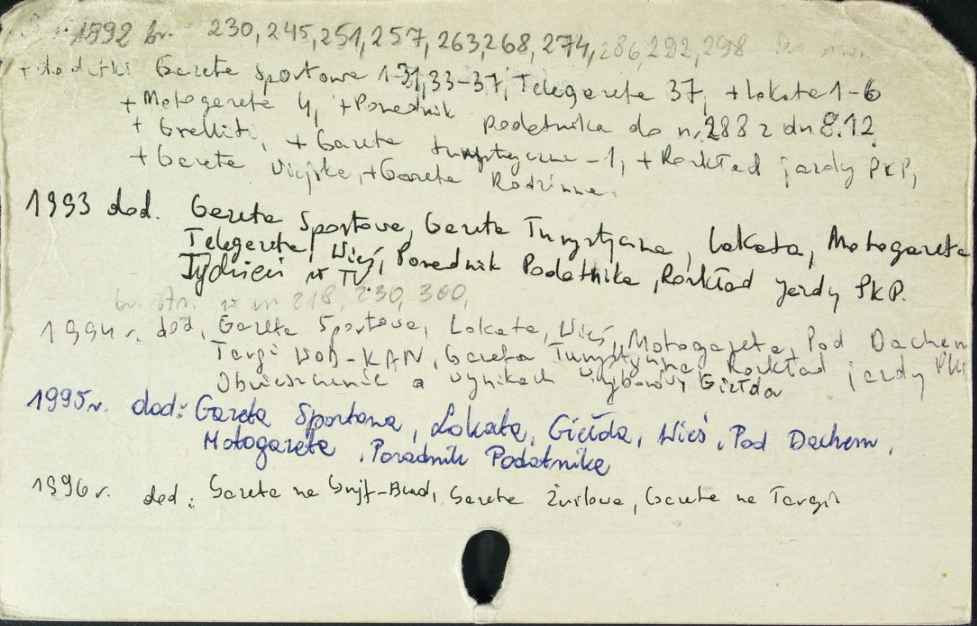 1992 br. 230, 245, 251, 257, 263, 268, 274, 286, 292, 298
+ dodatki Gazeta Sportowa 1-31, 33-37, Telegazeta 37, + Lokata 1-6
+ Motogazeta 4, + Poradnik Podatnika do nr 288 z dn 8.12
+ Graffiti, + Gazeta turystyczna - 1, + Rozkład jazdy PKP,
+ Gazeta Wiejska, + Gazeta Rodzinna.
1993 dod. Gazeta Sportowa, Gazeta Turystyczna, Lokata, Motogazeta
Telegazeta, Wieś, Poradnik Podatnika, Rozkład jazdy PKP.
Tydzień w TV,
br. str. w nr 218, 230, 300,
1994 r. dod. Gazeta Sportowa, Lokata, Wieś, Motogazeta, Pod Dachem
Targi BUD-KAN, Gazeta Turystyczna, Rozkład jazdy PKP
Obwieszczenie o wynikach wyborów, Giełda
1995 r. dod: Gazeta Sportowa, Lokata, Giełda, Wieś, Pod Dachem,
Motogazeta, Poradnik Podatnika
1996 r. dod: Gazeta na Bud, Gazeta Żużlowa, Gazeta na Targi